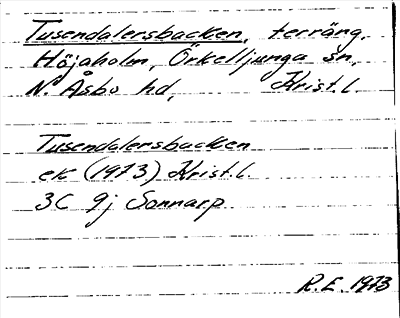 Tusendalersbacken, terräng,
Höjaholm, Örkelljunga sn,
N. Åsbo hd, Krist. l.
Tusendalersbacken
ek (1973) Krist. l.
3C 9j Sonnarp
R.E. 1973